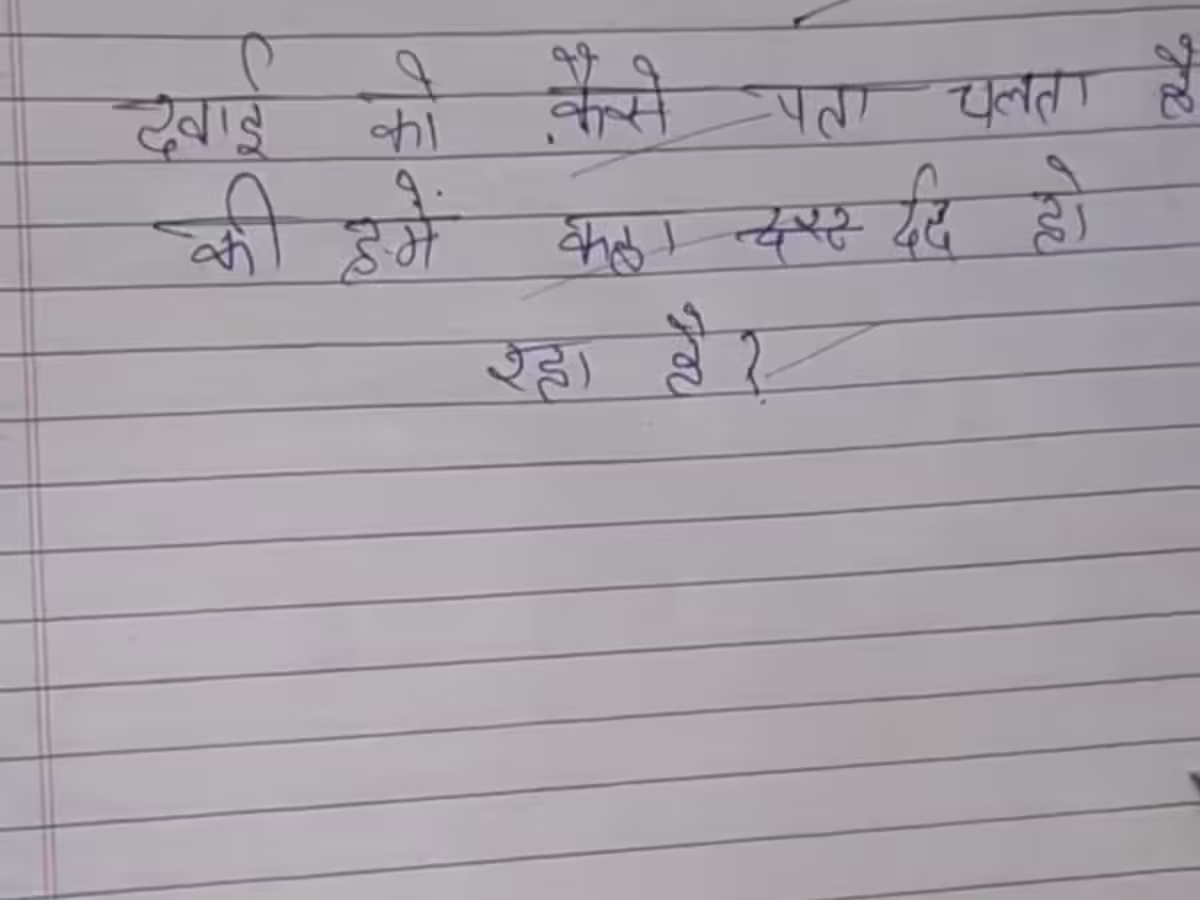 दवाई को कैसे पता चलता है
की हमें कहा दर्द हो
रहा है?